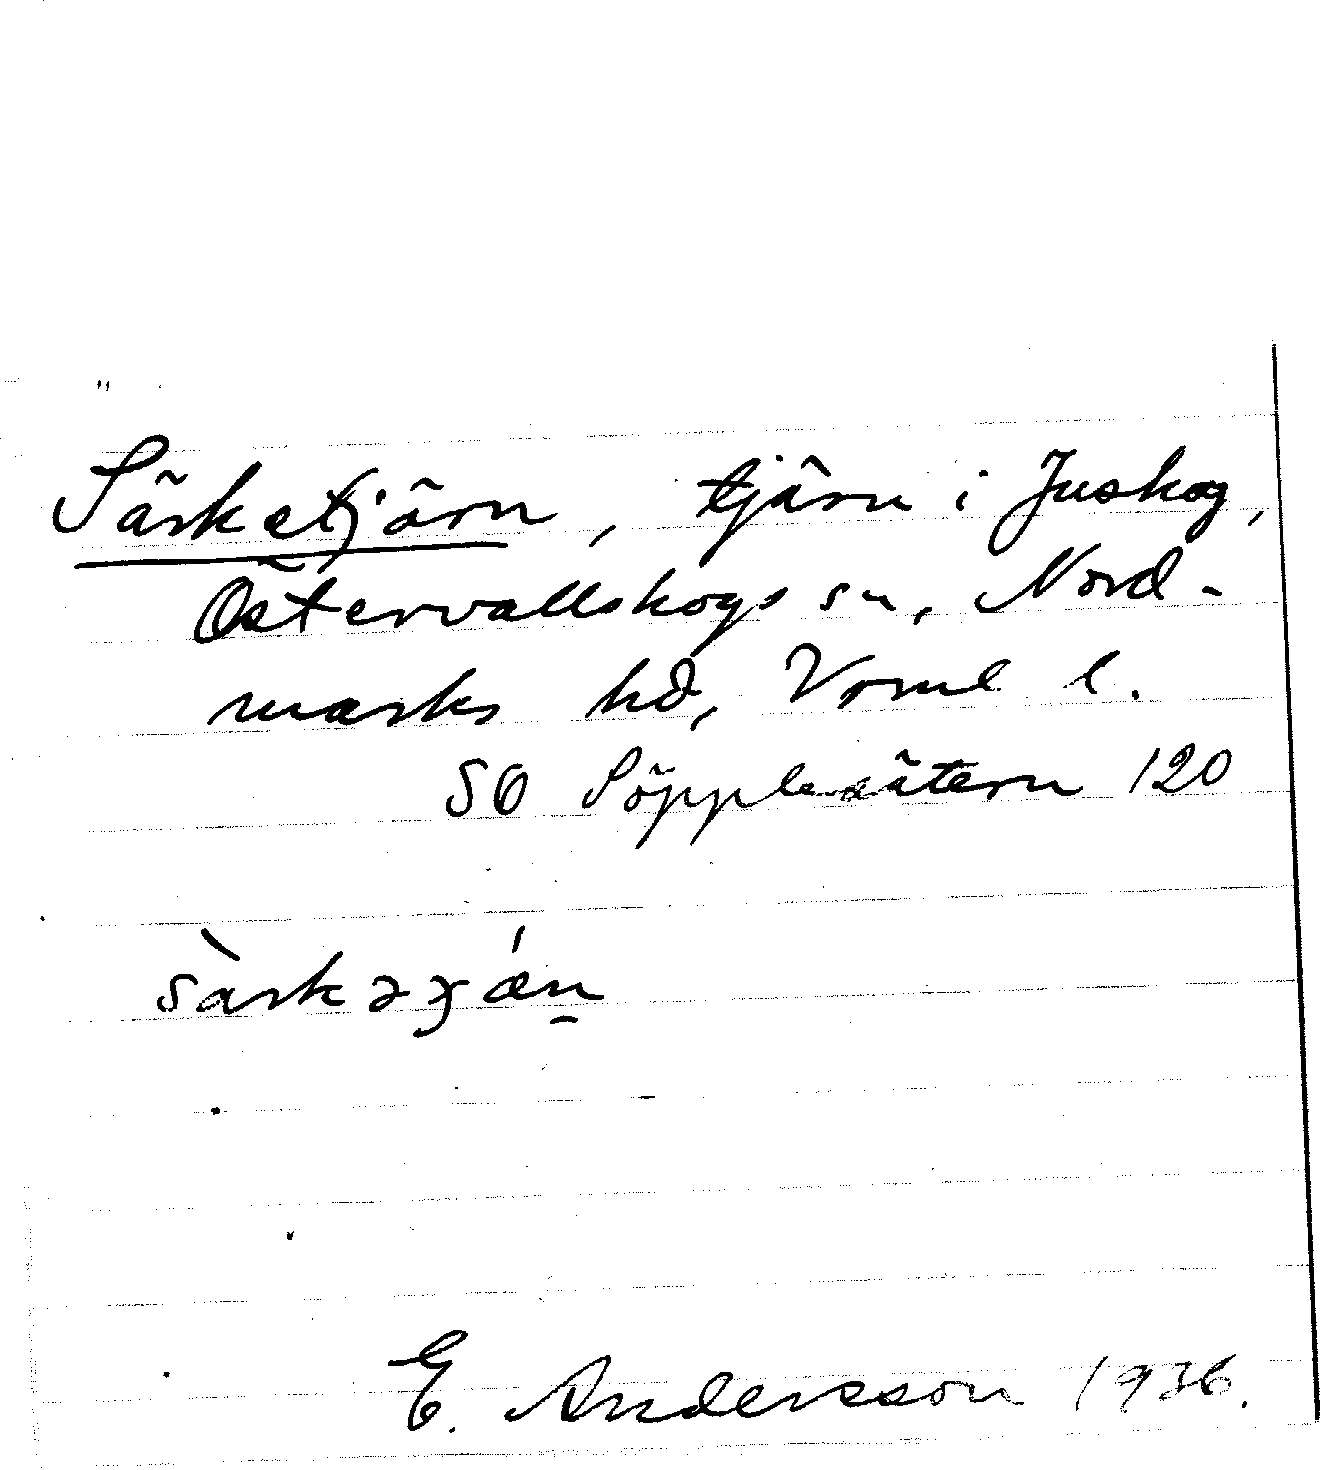 Särketjärn, tjärn i Juskog,
Östervallskogs sn, Nord-
marks hd, Vrml l.
SO Söpplesätern 120
sàrkəʒǽn̠
E. Andersson 1936.